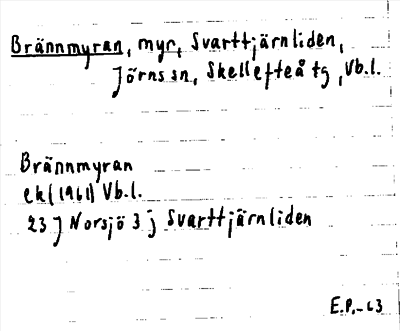 Brännmyran, myr, Svarttjärnliden,
Jörns sn, Skellefteå tg, Vb.l.
Brännmyran
ek (1961) Vb.l.
23 J Norsjö 3 j Svarttjärnliden
E.P.-63